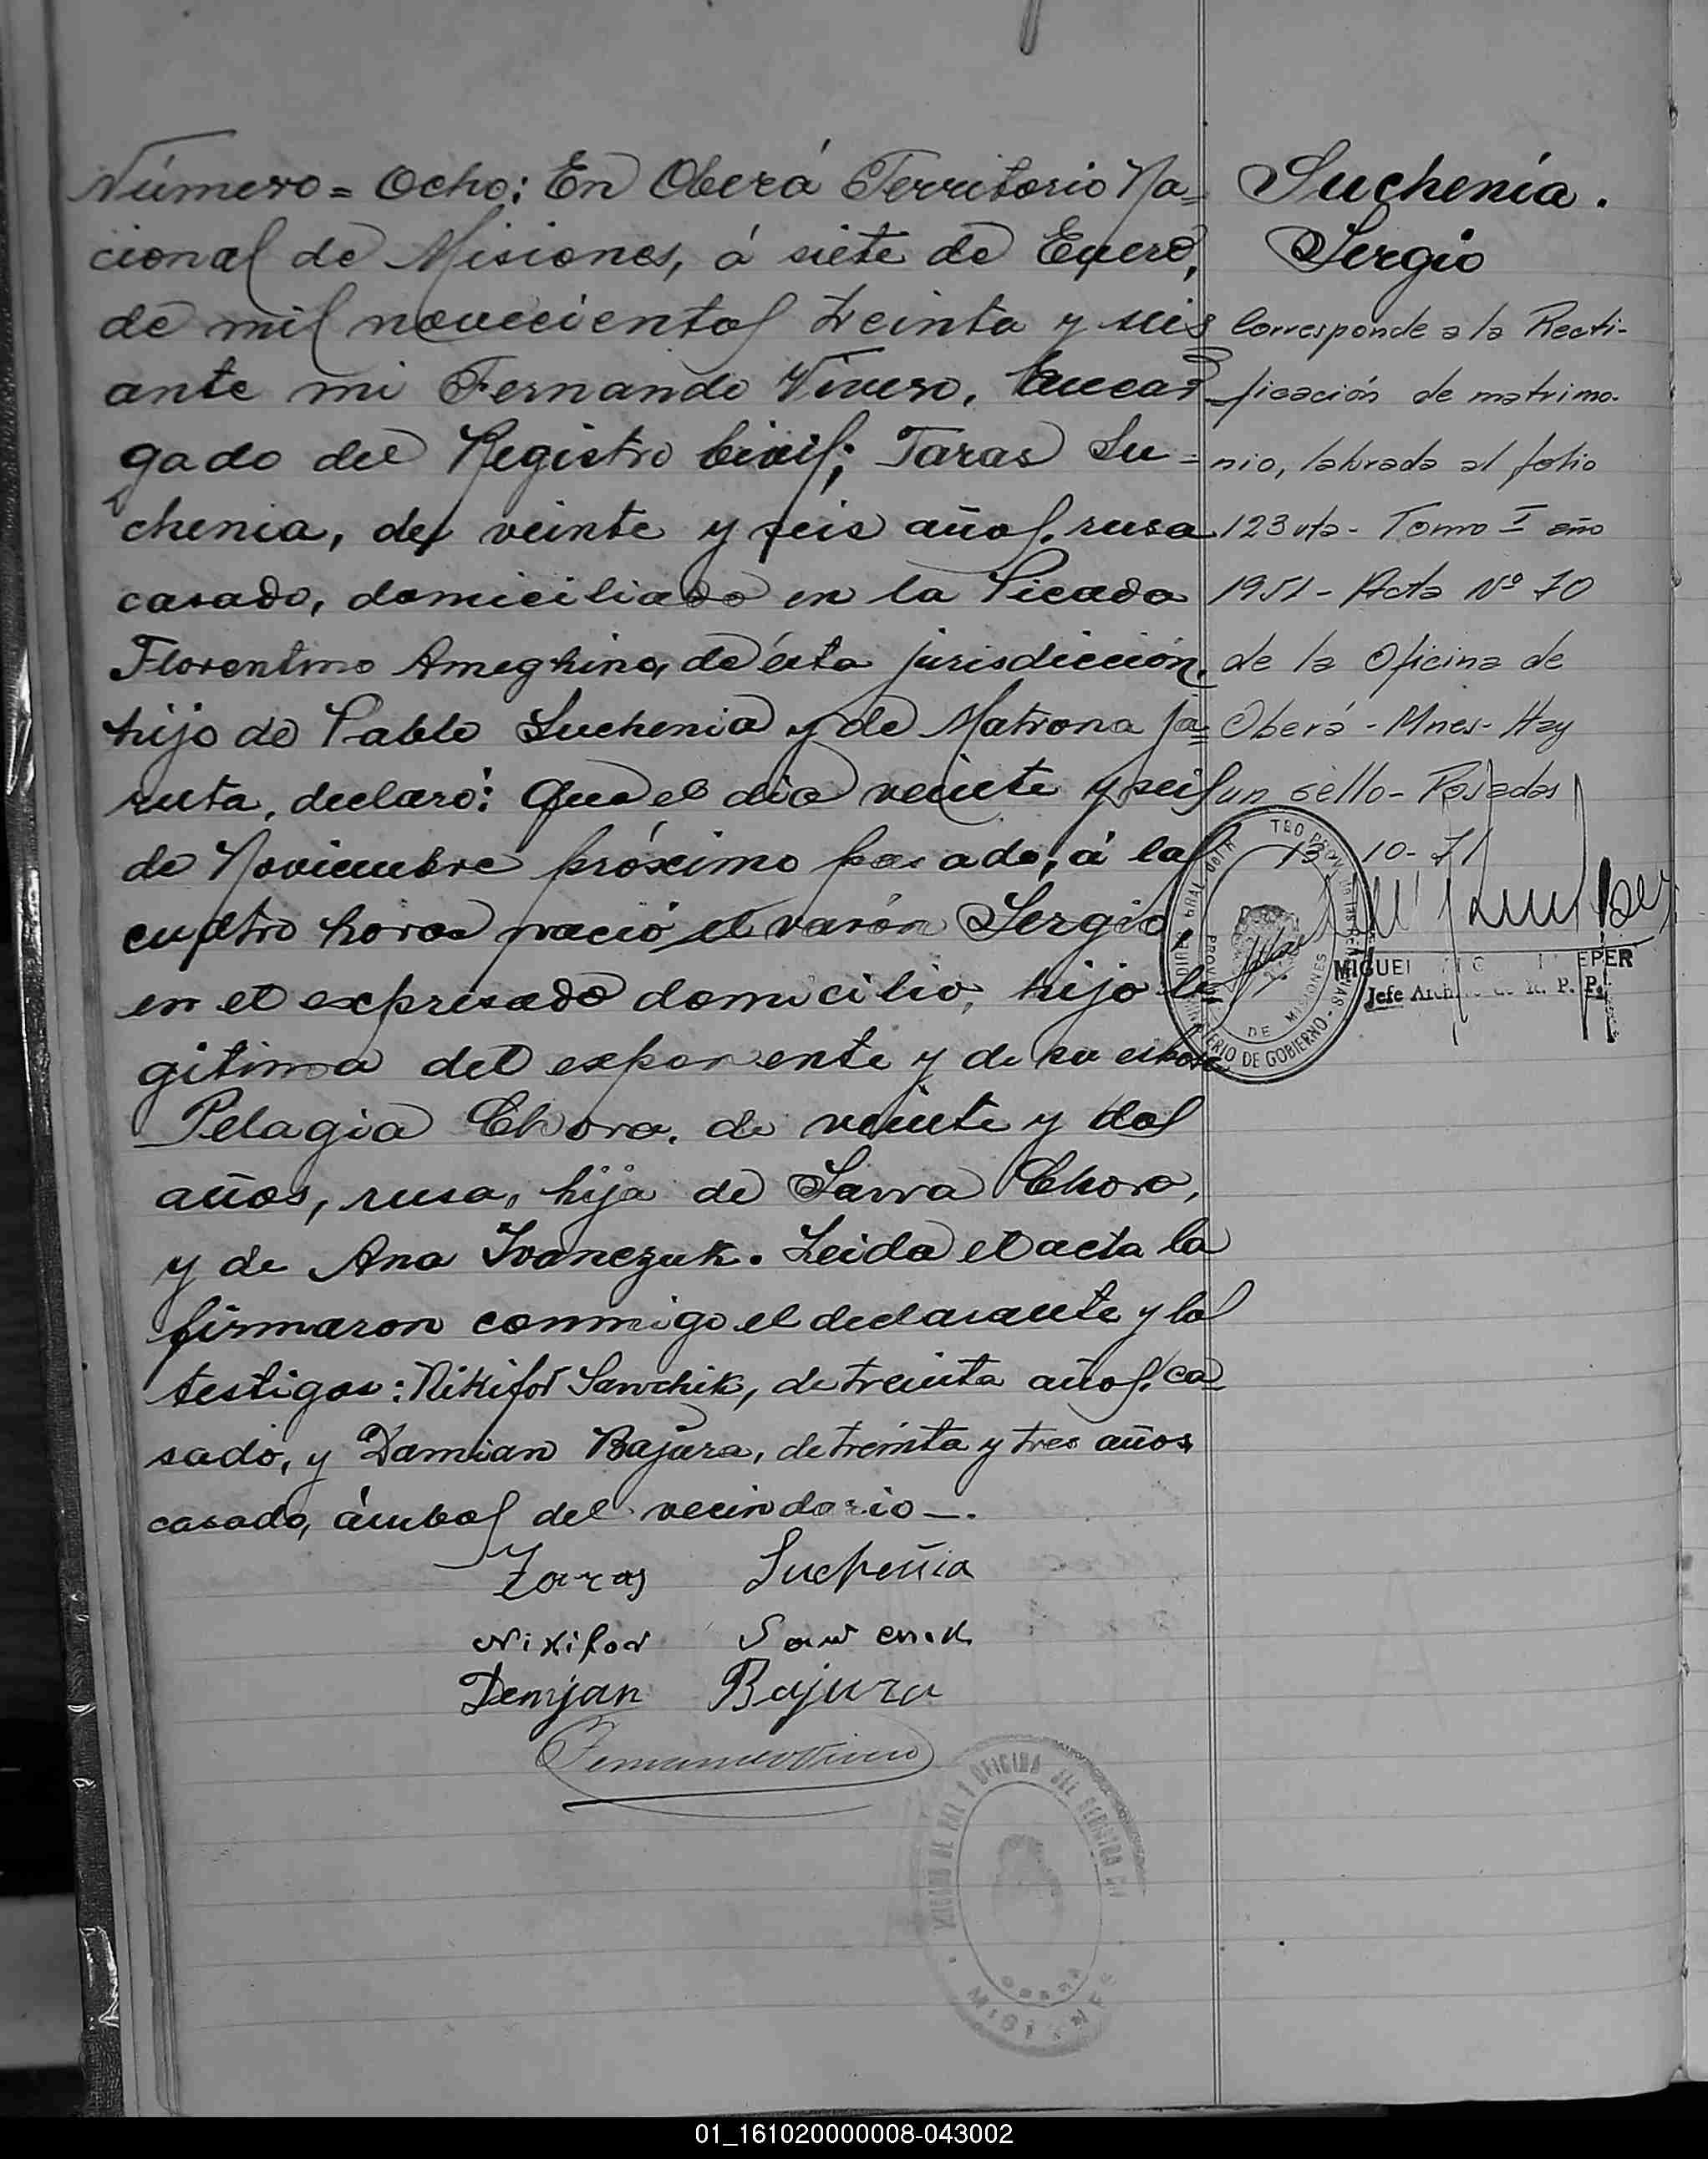 Número = Ocho: En Oberá Territorio Na=
cional de Misiones, á siete de Enero,
de mil novecientos treinta y seis
ante mi Fernando Vivero, Encar
gado del Registro Civil; Taras Su=
chenia, de veinte y seis años, ruso
casado, domiciliado en la Picada
Florentino Ameghino, de ésta jurisdicción,
hijo de Pablo Suchenia y de Matrona Ja=
ruta, declaró: Que el día veinte y seis
de Noviembre próximo pasado, á las
cuatro horas nació el varón Sergio,
en el expresado domicilio, hijo le
gitimo del exponente y de su esposa
Pelagia Chora, de veinte y dos
años, rusa, hija de Sawa Chora,
y de Ana Ivanczuk. Leida el acta la
firmaron conmigo el declarante y los
testigos: Nikifor Sawchik, de treinta años, ca=
sado, y Damian Bajura, de treinta y tres años
casado, ámbos del vecindario —.
Taras Suchenia
Nikifor
Demjan Bajura
Fernando Vivero
Suchenia.
Sergio
Corresponde a la Recti-
ficación de matrimo-
nio, labrada al folio
123 vta - Tomo I año
1951 - Acta Nº 70
de la Oficina de
Oberá - Mnes - Hay
un sello - Posadas
13 10-71
MIGUEL
Jefe R. P. P.
DE MISIONES
MINISTERIO DE GOBIERNO
JUZGADO DE PAZ Y OFICINA DEL REGISTRO CIVIL
OBERA
MISIONES
01_161020000008-043002